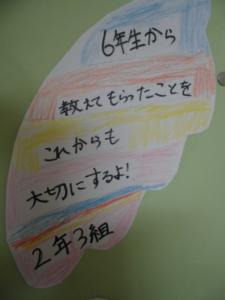 6年生から
教えてもらったことを
これからも
大切にするよ!
2年3組